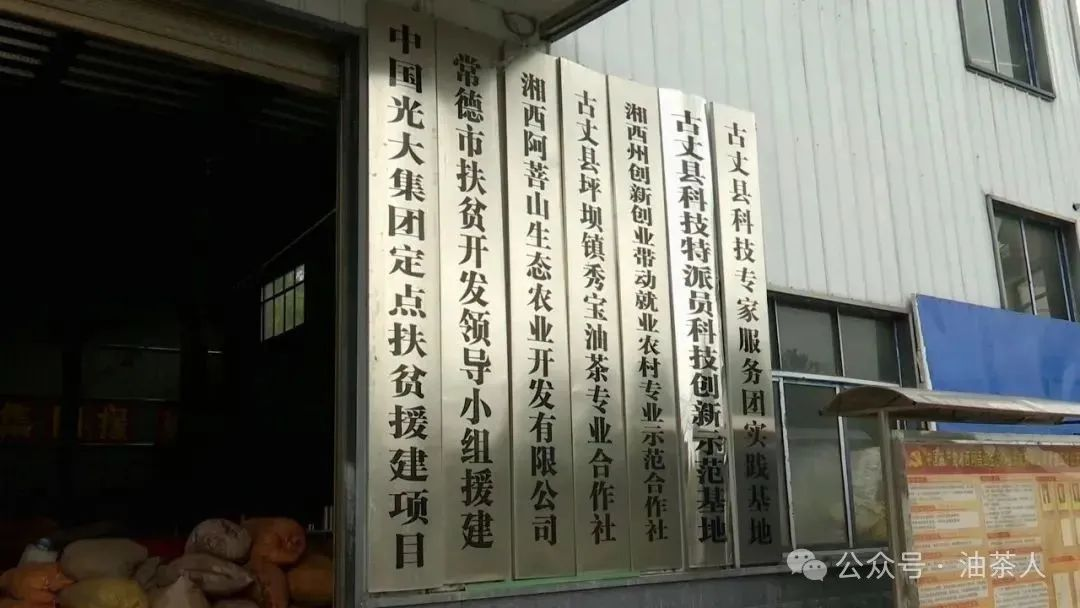 中国光大集团定点扶贫援建项目
常德市扶贫开发领导小组援建
湘西阿菩山生态农业开发有限公司
古丈县坪坝镇秀宝油茶专业合作社
湘西州创新创业带动就业农村专业示范合作社
古丈县科技特派员科技创新示范基地
古丈县科技专家服务团实践基地
公众号·油茶人